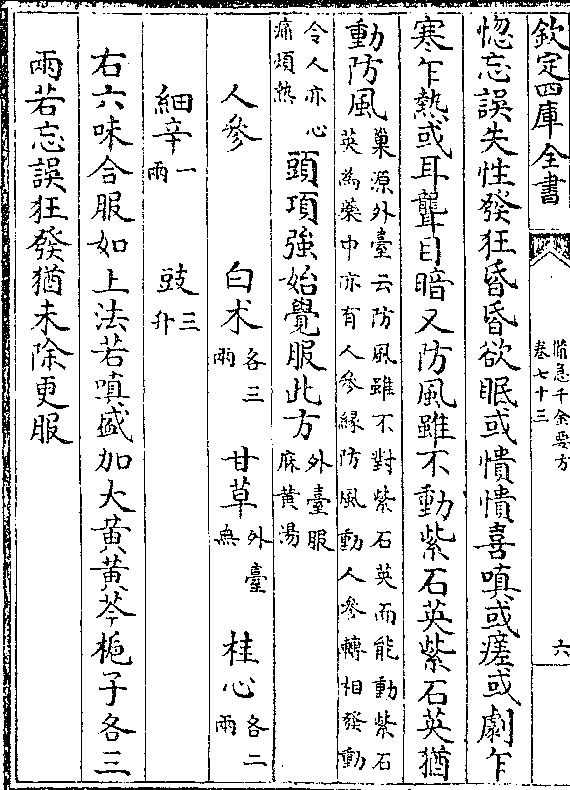 欽定四庫全書
備急千金要方
卷七十三
六
惚忘誤失性發狂昏昏欲眠或憒憒喜嗔或瘥或劇乍
寒乍熱或耳聾目暗又防風雖不動紫石英紫石英猶
動防風
巢源外臺云防風雖不對紫石英而能動紫石
英為藥中亦有人參緣防風動人參轉相發動
令人亦心
痛煩熱
頭項強始覺服此方
外臺服
麻黄湯
人參
白术各三兩
甘草外臺無
桂心各二兩
細辛一兩
豉三升
右六味合服如上法若嗔盛加大黄黄芩梔子各三
兩若忘誤狂發猶未除更服